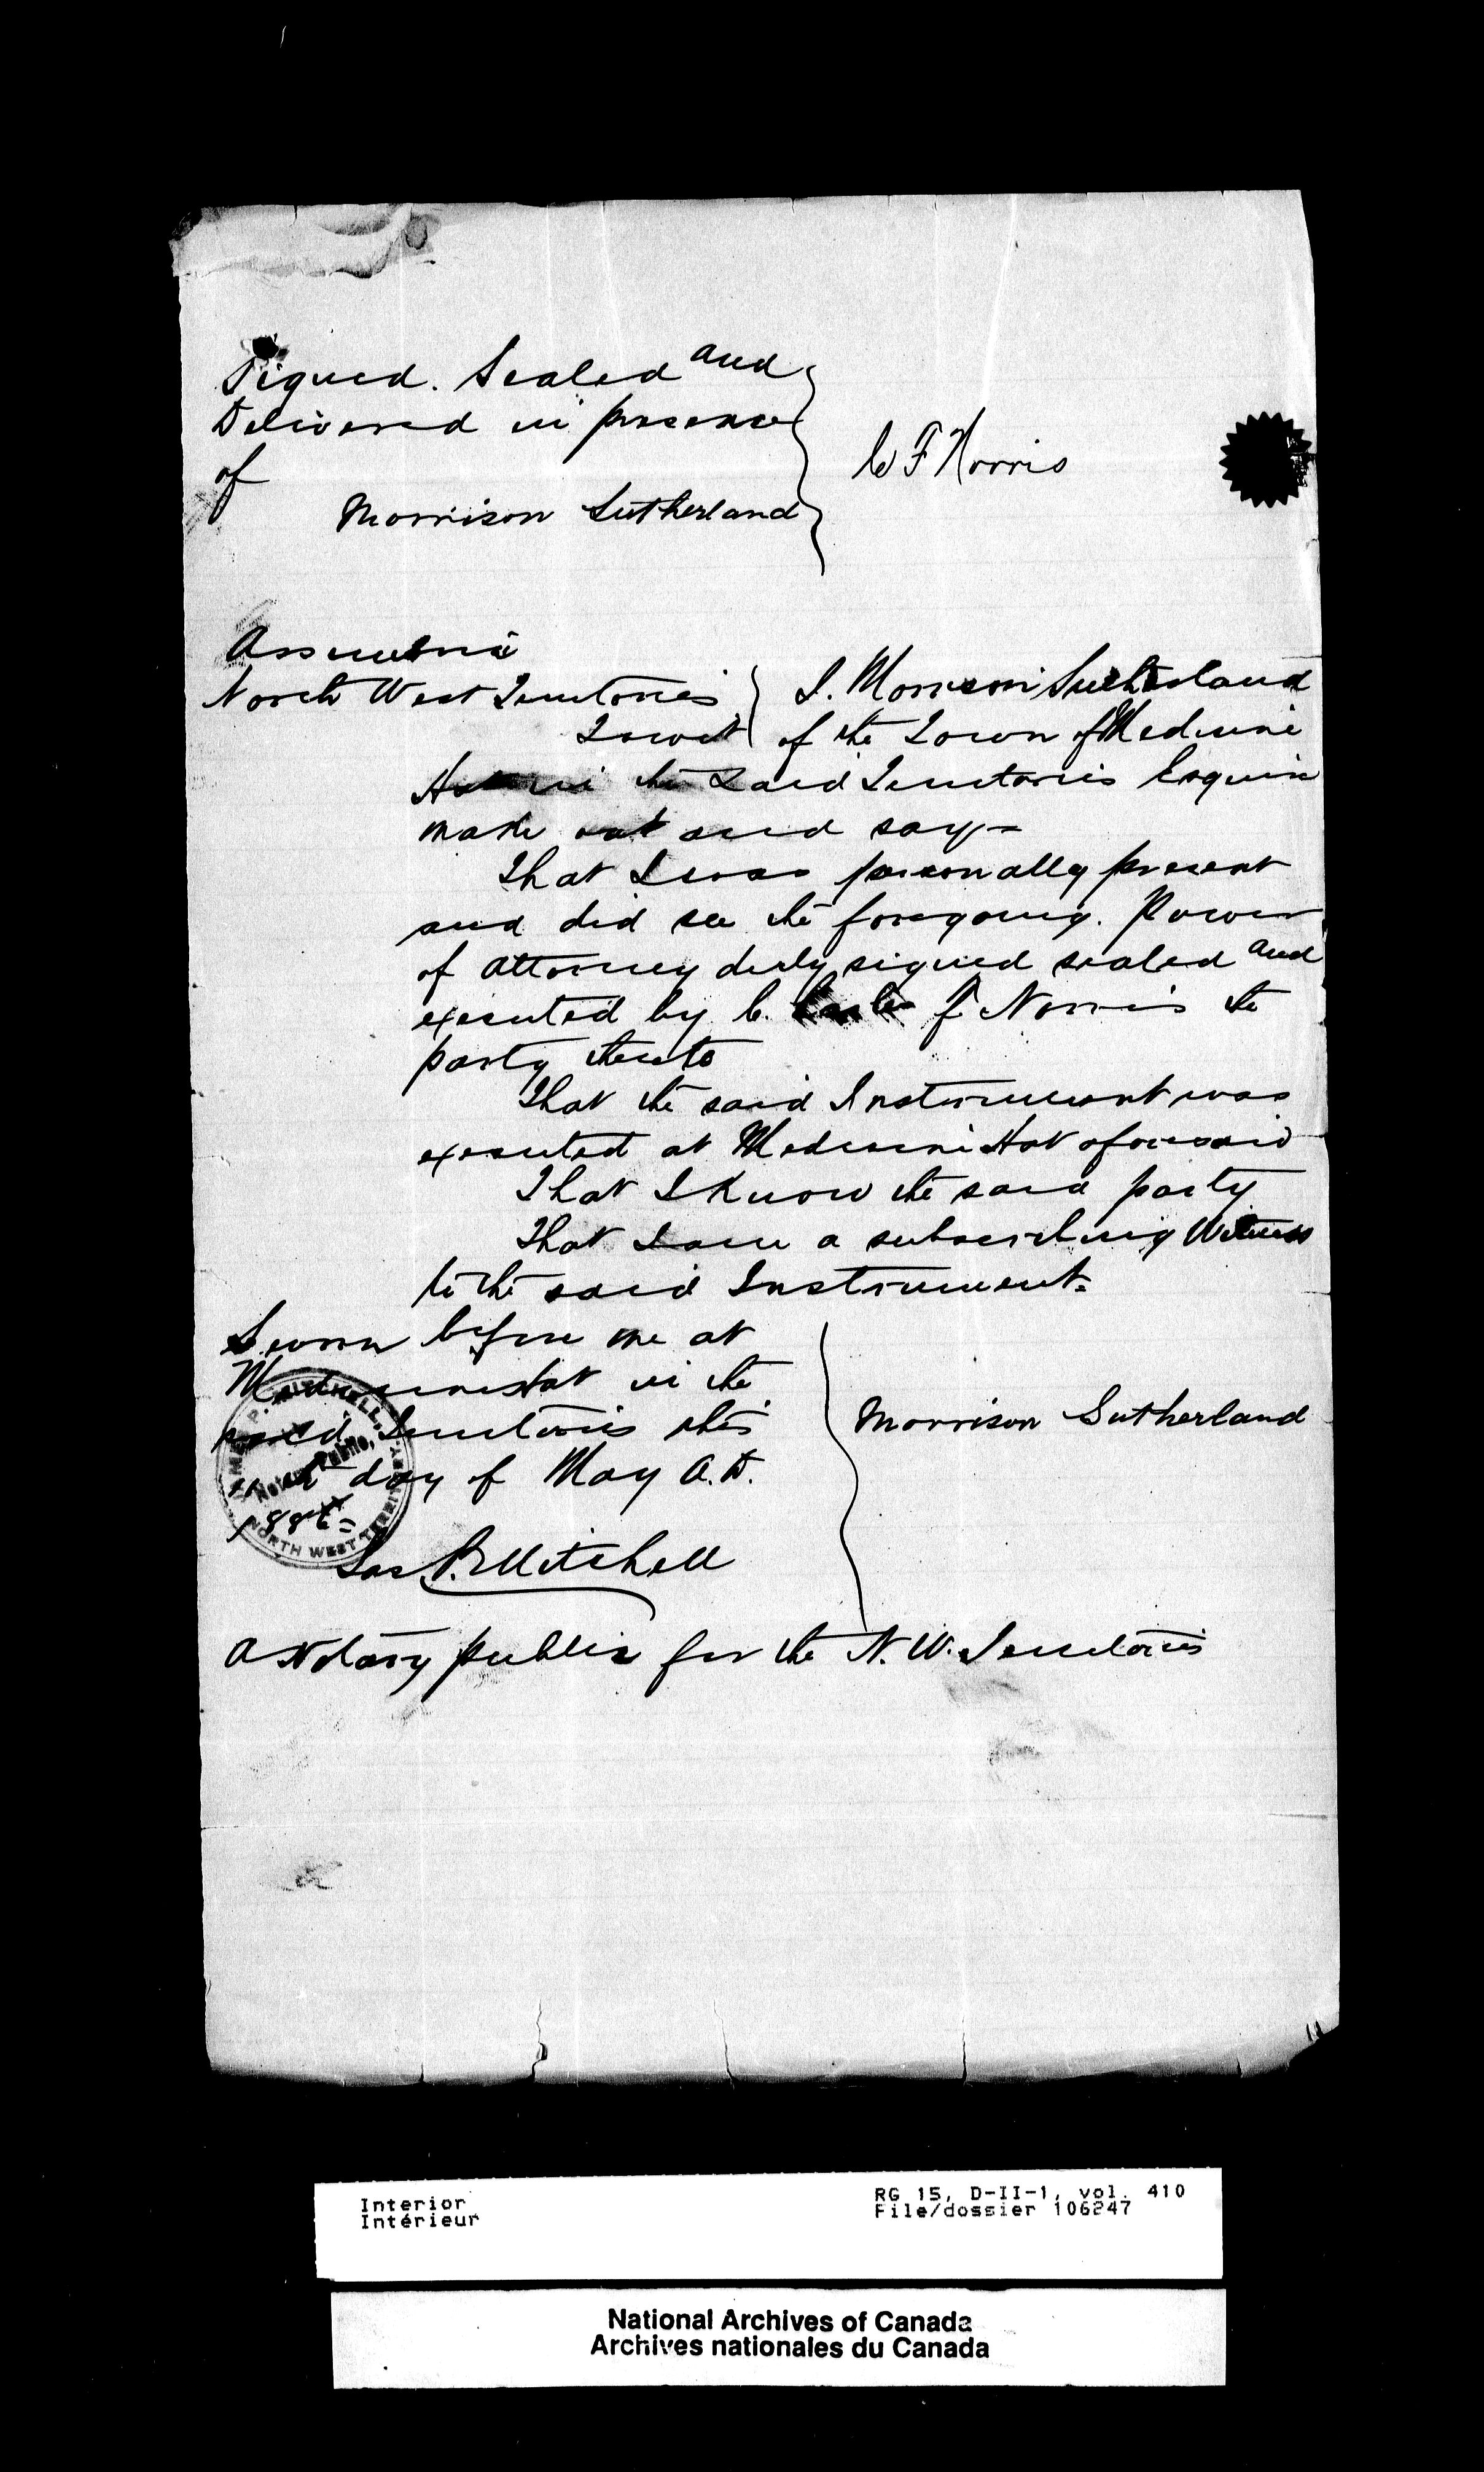 Signed. Sealed and
Delivered in presence
of
Morrison Sutherland
C F Norris
Assiniboia
North West Territories
To wit
I. Morrison Sutherland
of the Town of Medicine
Hat in the said Territories Esquire
make oat and say—
That I was personally present
and did see the foregoing. Power
of attorney duly signed sealed and
executed by C. F Norris the
party thereto
That the said Instrument was
executed at Medicine Hat aforesaid
That I know the said party
That I am a subscribing Witness
to the said Instrument.
Sworn before me at
Medicine Hat in the
said Territories this
day of May A.D.
188
Morrison Sutherland
JAMES P. MITCHELL,
Notary Public,
NORTH WEST TERRITORY
Jas P. Mitchell
A Notary public for the N. W. Territories
Interior
Intérieur
RG 15, D-II-1, vol. 410
File/dossier 106247
National Archives of Canada
Archives nationales du Canada